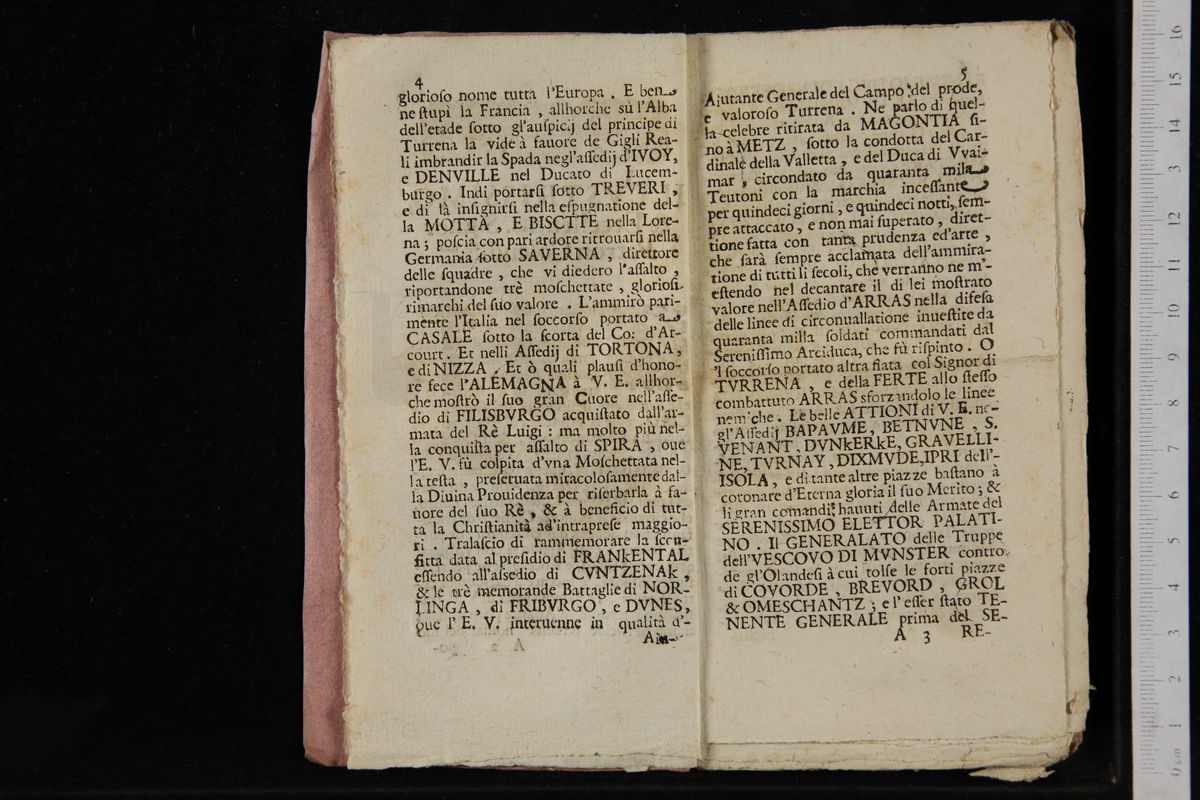 4
glorioſo nome tutta l'Europa . E ben
ne ſtupì la Francia , allhorche sù l'Alba
dell'etade ſotto gl'auſpicij del principe di
Turrena la vide à fauore de Gigli Rea-
li imbrandir la Spada negl'aſſedij d'IVOY,
e DENVILLE nel Ducato di Lucem-
burgo . Indi portarſi ſotto TREVERI ,
e di là inſignirſi nella eſpugnatione del-
la MOTTA , E BISCTTE nella Lore-
na ; poſcia con pari ardore ritrouarſi nella
Germania ſotto SAVERNA , direttore
delle ſquadre , che vi diedero l'aſſalto ,
riportandone trè moſchettate , glorioſi
rimarchi del ſuo valore . L'ammirò pari-
mente l'Italia nel ſoccorſo portato a
CASALE ſotto la ſcorta del Co: d'Ar-
court. Et nelli Aſſedij di TORTONA,
e di NIZZA . Et ò quali plauſi d'hono-
re fece l'ALEMAGNA à V. E. allhor-
che moſtrò il ſuo gran Cuore nell'aſſe-
dio di FILISBVRGO acquiſtato dall'ar-
mata del Rè Luigi : ma molto più nel-
la conquiſta per aſſalto di SPIRA , oue
l'E. V. fù colpita d'vna Moſchettata nel-
la teſta , preſeruata miracoloſamente dal-
la Diuina Prouidenza per riſerbarla à fa-
uore del ſuo Rè , & à beneficio di tut-
ta la Chriſtianità ad'intrapreſe maggio-
ri . Tralaſcio di rammemorare la ſcon-
fitta data al preſidio di FRANkENTAL
eſſendo all'aſſedio di CVNTZENAk ,
& le trè memorande Battaglie di NOR-
LINGA , di FRIBVRGO , e DVNES,
oue l' E. V. interuenne in qualità d'-
Aiu-
5
Ajutante Generale del Campo del prode,
e valoroſo Turrena . Ne parlo di quel-
la celebre ritirata da MAGONTIA ſi-
no à METZ , ſotto la condotta del Car-
dinale della Valletta , e del Duca di Vvai-
mar , circondato da quaranta mila
Teutoni con la marchia inceſſante
per quindeci giorni , e quindeci notti, ſem-
pre attaccato , e non mai ſuperato , diret-
tione fatta con tanta prudenza ed'arte ,
che ſarà ſempre acclamata dell'ammira-
tione di tutti li ſecoli, che verranno ne m'-
eſtendo nel decantare il di lei moſtrato
valore nell'Aſſedio d'ARRAS nella difeſa
delle linee di circonuallatione inueſtite da
quaranta milla ſoldati commandati dal
Sereniſſimo Arciduca, che fù riſpinto . O
'l ſoccorſo portato altra fiata col Signor di
TVRRENA , e della FERTE allo ſteſſo
combattuto ARRAS sforzandolo le linee
nemiche . Le belle ATTIONI di V. E. ne-
gl'Aſſedij BAPAVME, BETNVNE , S.
VENANT, DVNkERkE, GRAVELLI-
NE, TVRNAY , DIXMVDE, IPRI dell'-
ISOLA , e di tante altre piazze baſtano à
coronare d'Eterna gloria il ſuo Merito ; &
li gran comandi hauuti delle Armate del
SERENISSIMO ELETTOR PALATI-
NO . Il GENERALATO delle Truppe
dell'VESCOVO DI MVNSTER contro
de gl'Olandeſi à cui tolſe le forti piazze
di COVORDE , BREVORD , GROL
& OMESCHANTZ ; e l' eſſer ſtato TE-
NENTE GENERALE prima del SE-
A 3 RE-